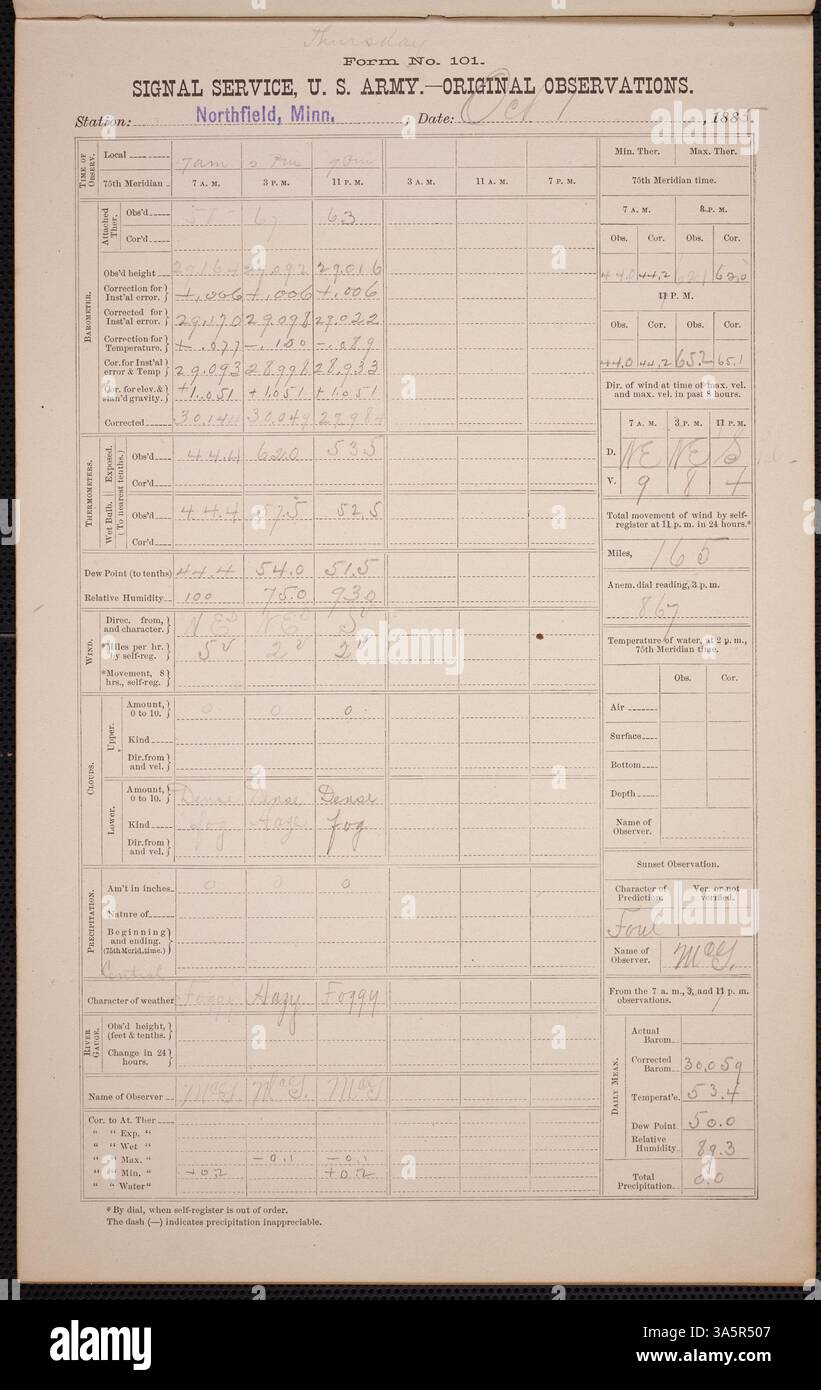 Thursday
Form No. 101.
SIGNAL SERVICE, U. S. ARMY.—ORIGINAL OBSERVATIONS.
Station: Northfield, Minn. , Date: Oct 1 , 1885.
TIME OF OBSERV.
Local 7am 2 Pm 9 Pm
75th Meridian 7 A. M. 3 P. M. 11 P. M. 3 A. M. 11 A. M. 7 P. M.
BAROMETER.
Attached Ther.
Obs'd 58 67 63
Cor'd
Obs'd height 29.164 29.092 29.016
Correction for Inst'al error. +.006 +.006 +.006
Corrected for Inst'al error. 29.170 29.098 29.022
Correction for Temperature. -.077 -.100 -.089
Cor. for Inst'al error & Temp 29.093 28.998 28.933
Cor. for elev. & stan'd gravity. +1.051 +1.051 +1.051
Corrected 30.144 30.049 29.984
THERMOMETERS.
(To nearest tenths.)
Exposed.
Obs'd 44.4 62.0 53.5
Cor'd
Wet Bulb.
Obs'd 44.4 57.5 52.5
Cor'd
Dew Point (to tenths) 44.4 54.0 51.5
Relative Humidity 100 75.0 93.0
WIND.
Direc. from, and character. NE NE S
*Miles per hr. by self-reg. 5 2 2
*Movement, 8 hrs., self-reg.
CLOUDS.
Upper.
Amount, 0 to 10. 0 0 0
Kind
Dir. from and vel.
Lower.
Amount, 0 to 10. Dense Dense Dense
Kind fog Haze fog
Dir. from and vel.
PRECIPITATION.
Am't in inches 0 0 0
Nature of
Beginning and ending.
(75th Merid. time.)
Central
Character of weather Foggy Hazy Foggy
RIVER GAUGE.
Obs'd height, (feet & tenths.)
Change in 24 hours.
Name of Observer McG. McG. McG
Cor. to At. Ther
" " Exp. "
" " Wet "
" " Max. " -0.1 -0.1
" " Min. " +0.2 +0.2
" " Water "
Min. Ther. Max. Ther.
75th Meridian time.
7 A. M. 3 P. M.
Obs. Cor. Obs. Cor.
44.0 44.2 62.1 62.0
11 P. M.
Obs. Cor. Obs. Cor.
44.0 44.2 65.2 65.1
Dir. of wind at time of max. vel. and max. vel. in past 8 hours.
7 A. M. 3 P. M. 11 P. M.
D. NE NE S
V. 9 8 4
Total movement of wind by self-register at 11 p. m. in 24 hours.*
Miles, 165
Anem. dial reading, 3 p. m.
867
Temperature of water, at 2 p. m., 75th Meridian time.
Obs. Cor.
Air
Surface
Bottom
Depth
Name of Observer.
Sunset Observation.
Character of Prediction. Ver. or not verified.
Foul
Name of Observer. McG.
From the 7 a. m., 3, and 11 p. m. observations.
DAILY MEAN.
Actual Barom.
Corrected Barom. 30.059
Temperat'e. 53.4
Dew Point 50.0
Relative Humidity 89.3
Total Precipitation 0.0
* By dial, when self-register is out of order.
The dash (—) indicates precipitation inappreciable.
alamy
Image ID: 3A5R507
www.alamy.com